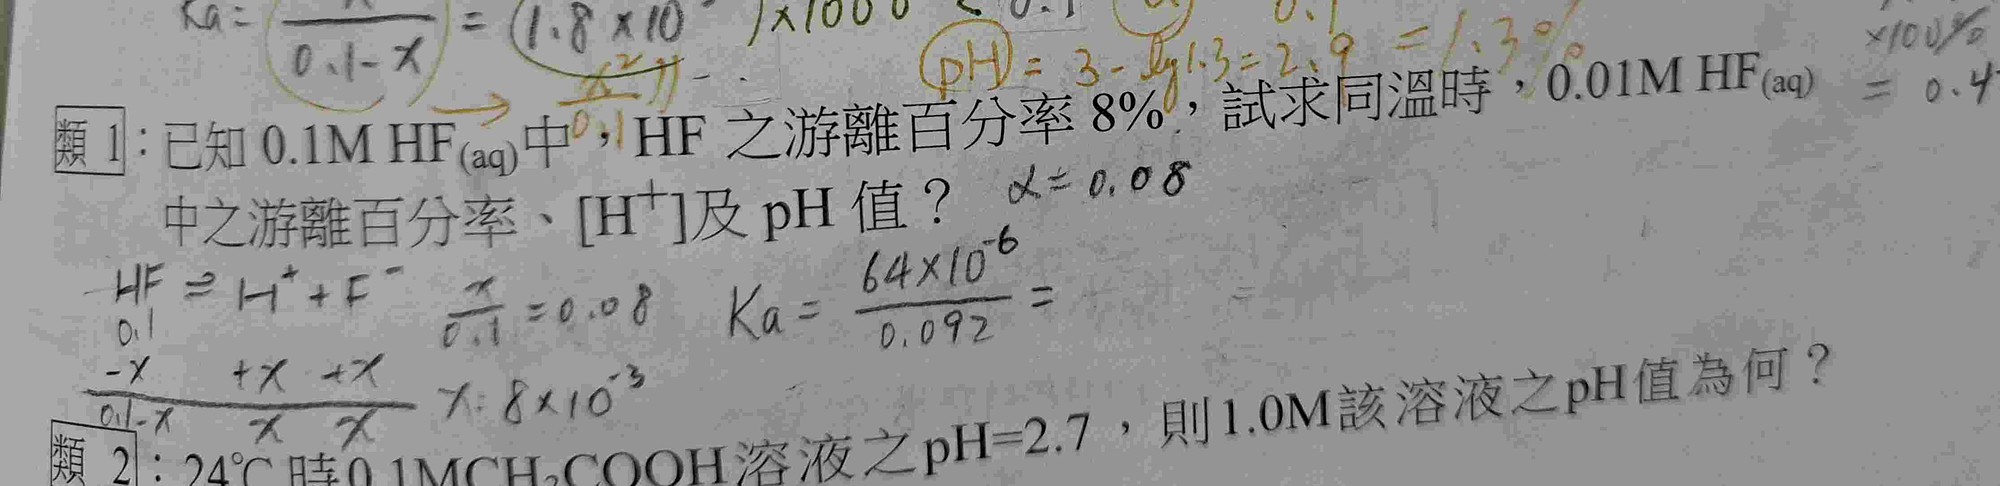 Ka= x / 0.1-x = (1.8×10 )×1000 < 0.1
x² / 0.1 pH = 3 - log1.3 = 2.9 = 1.3% ×100%
類1：已知 0.1M HF(aq)中，HF 之游離百分率 8%，試求同溫時，0.01M HF(aq) = 0.4
中之游離百分率、[H⁺]及 pH 值？ α=0.08
HF ⇌ H⁺ + F⁻ x/0.1 = 0.08 Ka = 64×10⁻⁶ / 0.092 =
0.1
-x +x +x
0.1-x x x x: 8×10⁻³
類2：24℃時0.1MCH₃COOH溶液之pH=2.7，則1.0M該溶液之pH值為何？